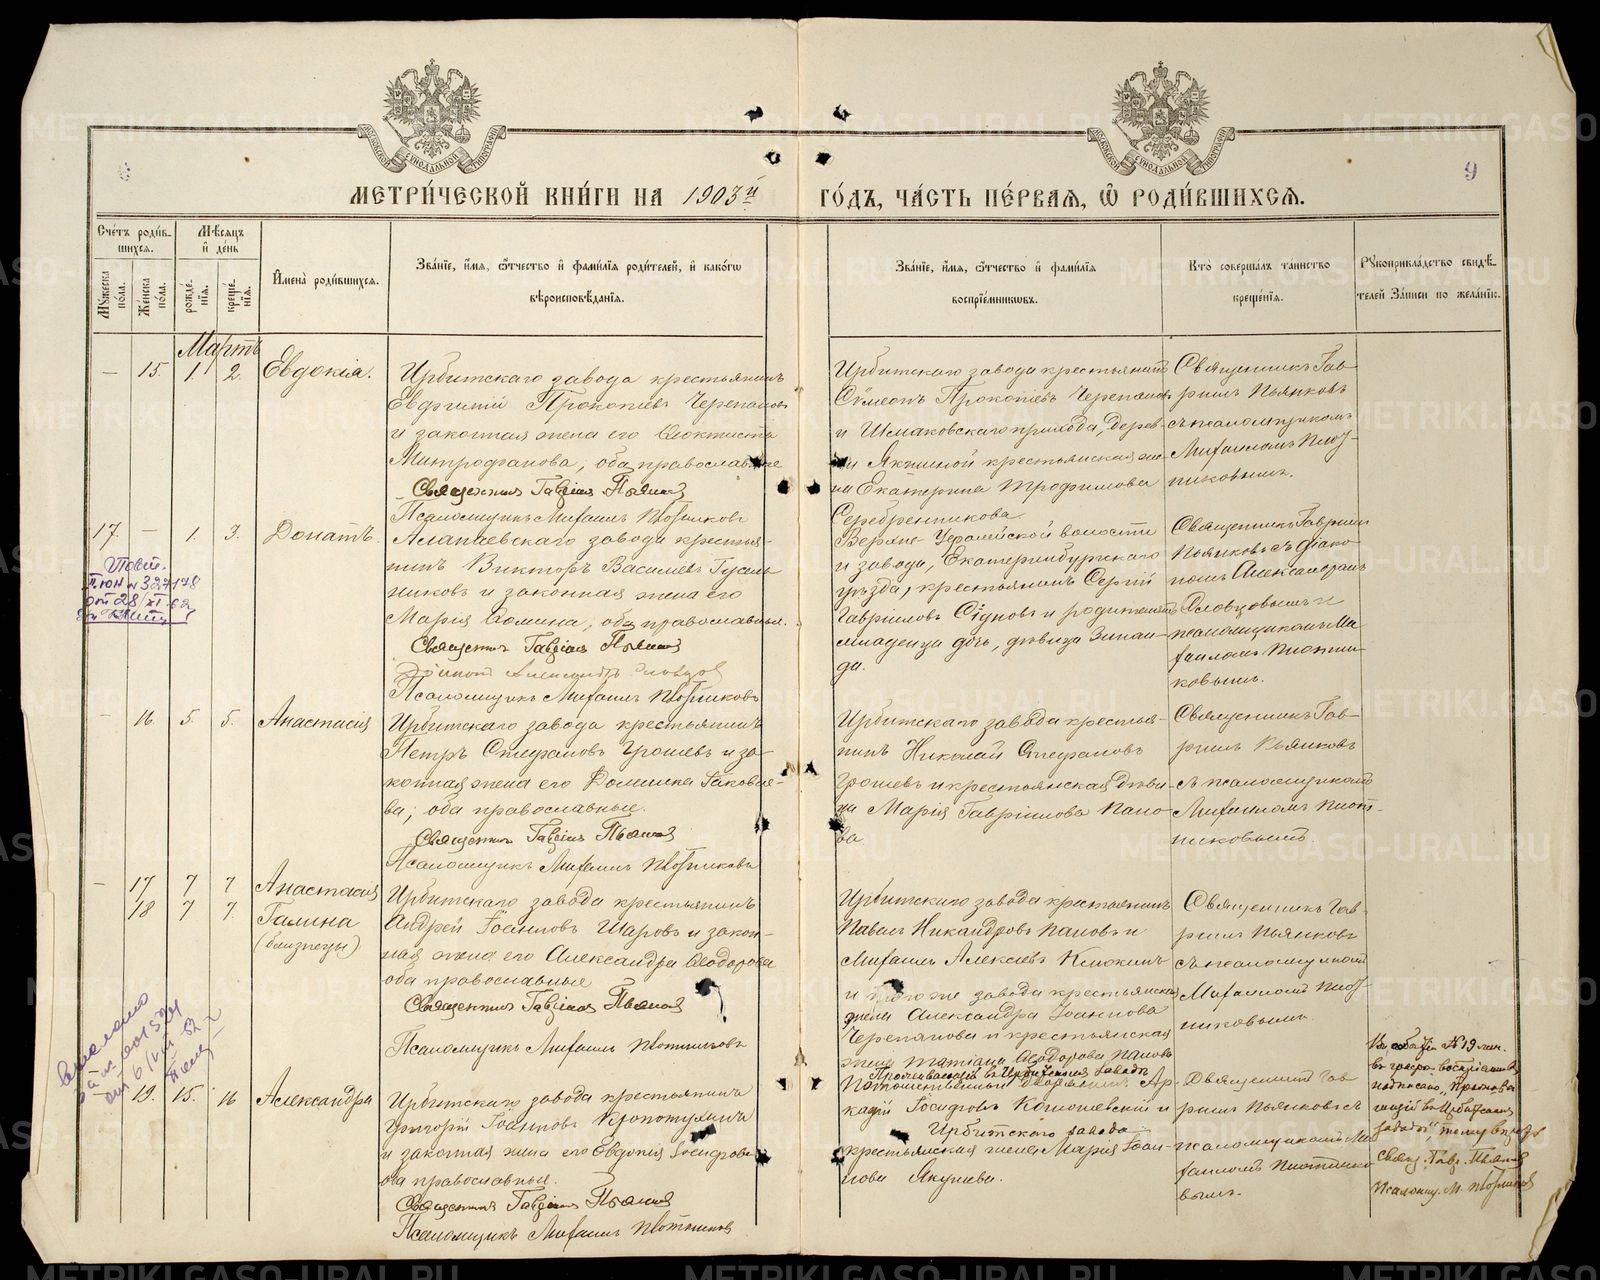 МЕТРИ́ЧЕСКОЙ КНИ́ГИ НА 1903й ГО́ДЪ, ЧА́СТЬ ПЕ́РВАѦ, Ѡ҆ РОДИ́ВШИХСѦ.
9
Сче́тъ роди́в-
шихсѧ.
Мꙋжеска по́ла.
Же́нска по́ла.
Мѣ́сѧцъ
и҆ де́нь
рожде́-
нїѧ.
креще́-
нїѧ.
И҆мена̀ роди́вшихсѧ.
Зва́нїе, и҆́мѧ, ѻ҆́тчество и҆ фами́лїѧ роди́телей, и҆ како́гѡ
вѣроисповѣ́данїѧ.
Зва́нїе, и҆́мѧ, ѻ҆́тчество и҆ фами́лїѧ
воспрїе́мникѡвъ.
Кто̀ соверша́лъ та́инство
креще́нїѧ.
Рꙋкоприкла́дство свидѣ́-
телей за́писи по жела́нїю.
Мартъ
— 15. 1. 2. Евдокія.
Ирбитскаго завода крестьянинъ
Евфгеній Прокопіевъ Черепановъ
и законная жена его Ѳеоктиста
Митрофанова, оба православные
Священникъ Гавріилъ Пьянковъ
Псаломщикъ Михаилъ Плотниковъ
Ирбитскаго завода крестьянинъ
Сѵмеонъ Прокопіевъ Черепановъ
и Шмаковскаго прихода, дерев-
ни Якшиной крестьянская же-
на Екатерина Трофимова
Серебренникова
Священникъ Гав-
ріилъ Пьянковъ
съ псаломщикомъ
Михаиломъ Плот-
никовымъ.
17. — 1. 3. Донатъ.
Алапаевскаго завода крестья-
нинъ Викторъ Васильевъ Гусель-
никовъ и законная жена его
Марія Ѳомина, оба православные.
Священникъ Гавріилъ Пьянковъ
Діаконъ Александръ Словцовъ
Псаломщикъ Михаилъ Плотниковъ
Верхне-Уфалейской волости
и завода, Екатеринбургскаго
уѣзда, крестьянинъ Сергій
Гавріиловъ Сѣдовъ и родителей
младенца дочь, дѣвица Зинаи-
да.
Священникъ Гавріилъ
Пьянковъ съ діако-
номъ Александромъ
Словцовымъ и
псаломщикомъ Ми-
хаиломъ Плотни-
ковымъ.
Повт.
от 28/XI-62
— 16. 5. 5. Анастасія
Ирбитскаго завода крестьянинъ
Петръ Стефановъ Грошевъ и за-
конная жена его Домника Іаковле-
ва; оба православные.
Священникъ Гавріилъ Пьянковъ
Псаломщикъ Михаилъ Плотниковъ
Ирбитскаго завода крестья-
нинъ Николай Стефановъ
Грошевъ и крестьянская дѣви-
ца Марія Гавріилова Папо-
ва.
Священникъ Гав-
ріилъ Пьянковъ
съ псаломщикомъ
Михаиломъ Плот-
никовымъ.
— 17 7 7 Анастасія
18 7 7. Галина
(близнецы)
Ирбитскаго завода крестьянинъ
Андрей Іоанновъ Шаровъ и закон-
ная жена его Александра Ѳеодорова
оба православные
Священникъ Гавріилъ Пьянковъ
Псаломщикъ Михаилъ Плотниковъ
Ирбитскаго завода крестьянинъ
Павелъ Никандровъ Паповъ и
Михаилъ Алексіевъ Клюкинъ
и того же завода крестьянская
жена Александра Іоаннова
Черепанова и крестьянская
жена Татіана Ѳеодорова Папова
Священникъ Гав-
ріилъ Пьянковъ
съ псаломщикомъ
Михаиломъ Плот-
никовымъ.
19. 15. 16 Александра
Ирбитскаго завода крестьянинъ
Григорій Іоанновъ Кропотухинъ
и законная жена его Евдокія Іосифова
оба православные.
Священникъ Гавріилъ Пьянковъ
Псаломщикъ Михаилъ Плотниковъ
Проживающій въ Ирбитскомъ заводѣ
Потомственный дворянинъ Ар-
кадій Іосифовъ и
Ирбитскаго завода
крестьянская жена Марія Іоан-
нова Якушева.
Священникъ Гав-
ріилъ Пьянковъ съ
псаломщикомъ Ми-
хаиломъ Плотнико-
вымъ.
№ 19
въ графѣ о воспріемникахъ
надписано „Прожива-
ющій въ Ирбитскомъ
заводѣ“, тому вѣрить
Свящ. Гавр. Пьянковъ
Псаломщ. М. Плотниковъ
METRIKI.GASO-URAL.RU